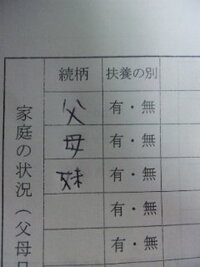 続柄 扶養の別
父 有・無
母 有・無
妹 有・無
有・無
有・無
家庭の状況（父母